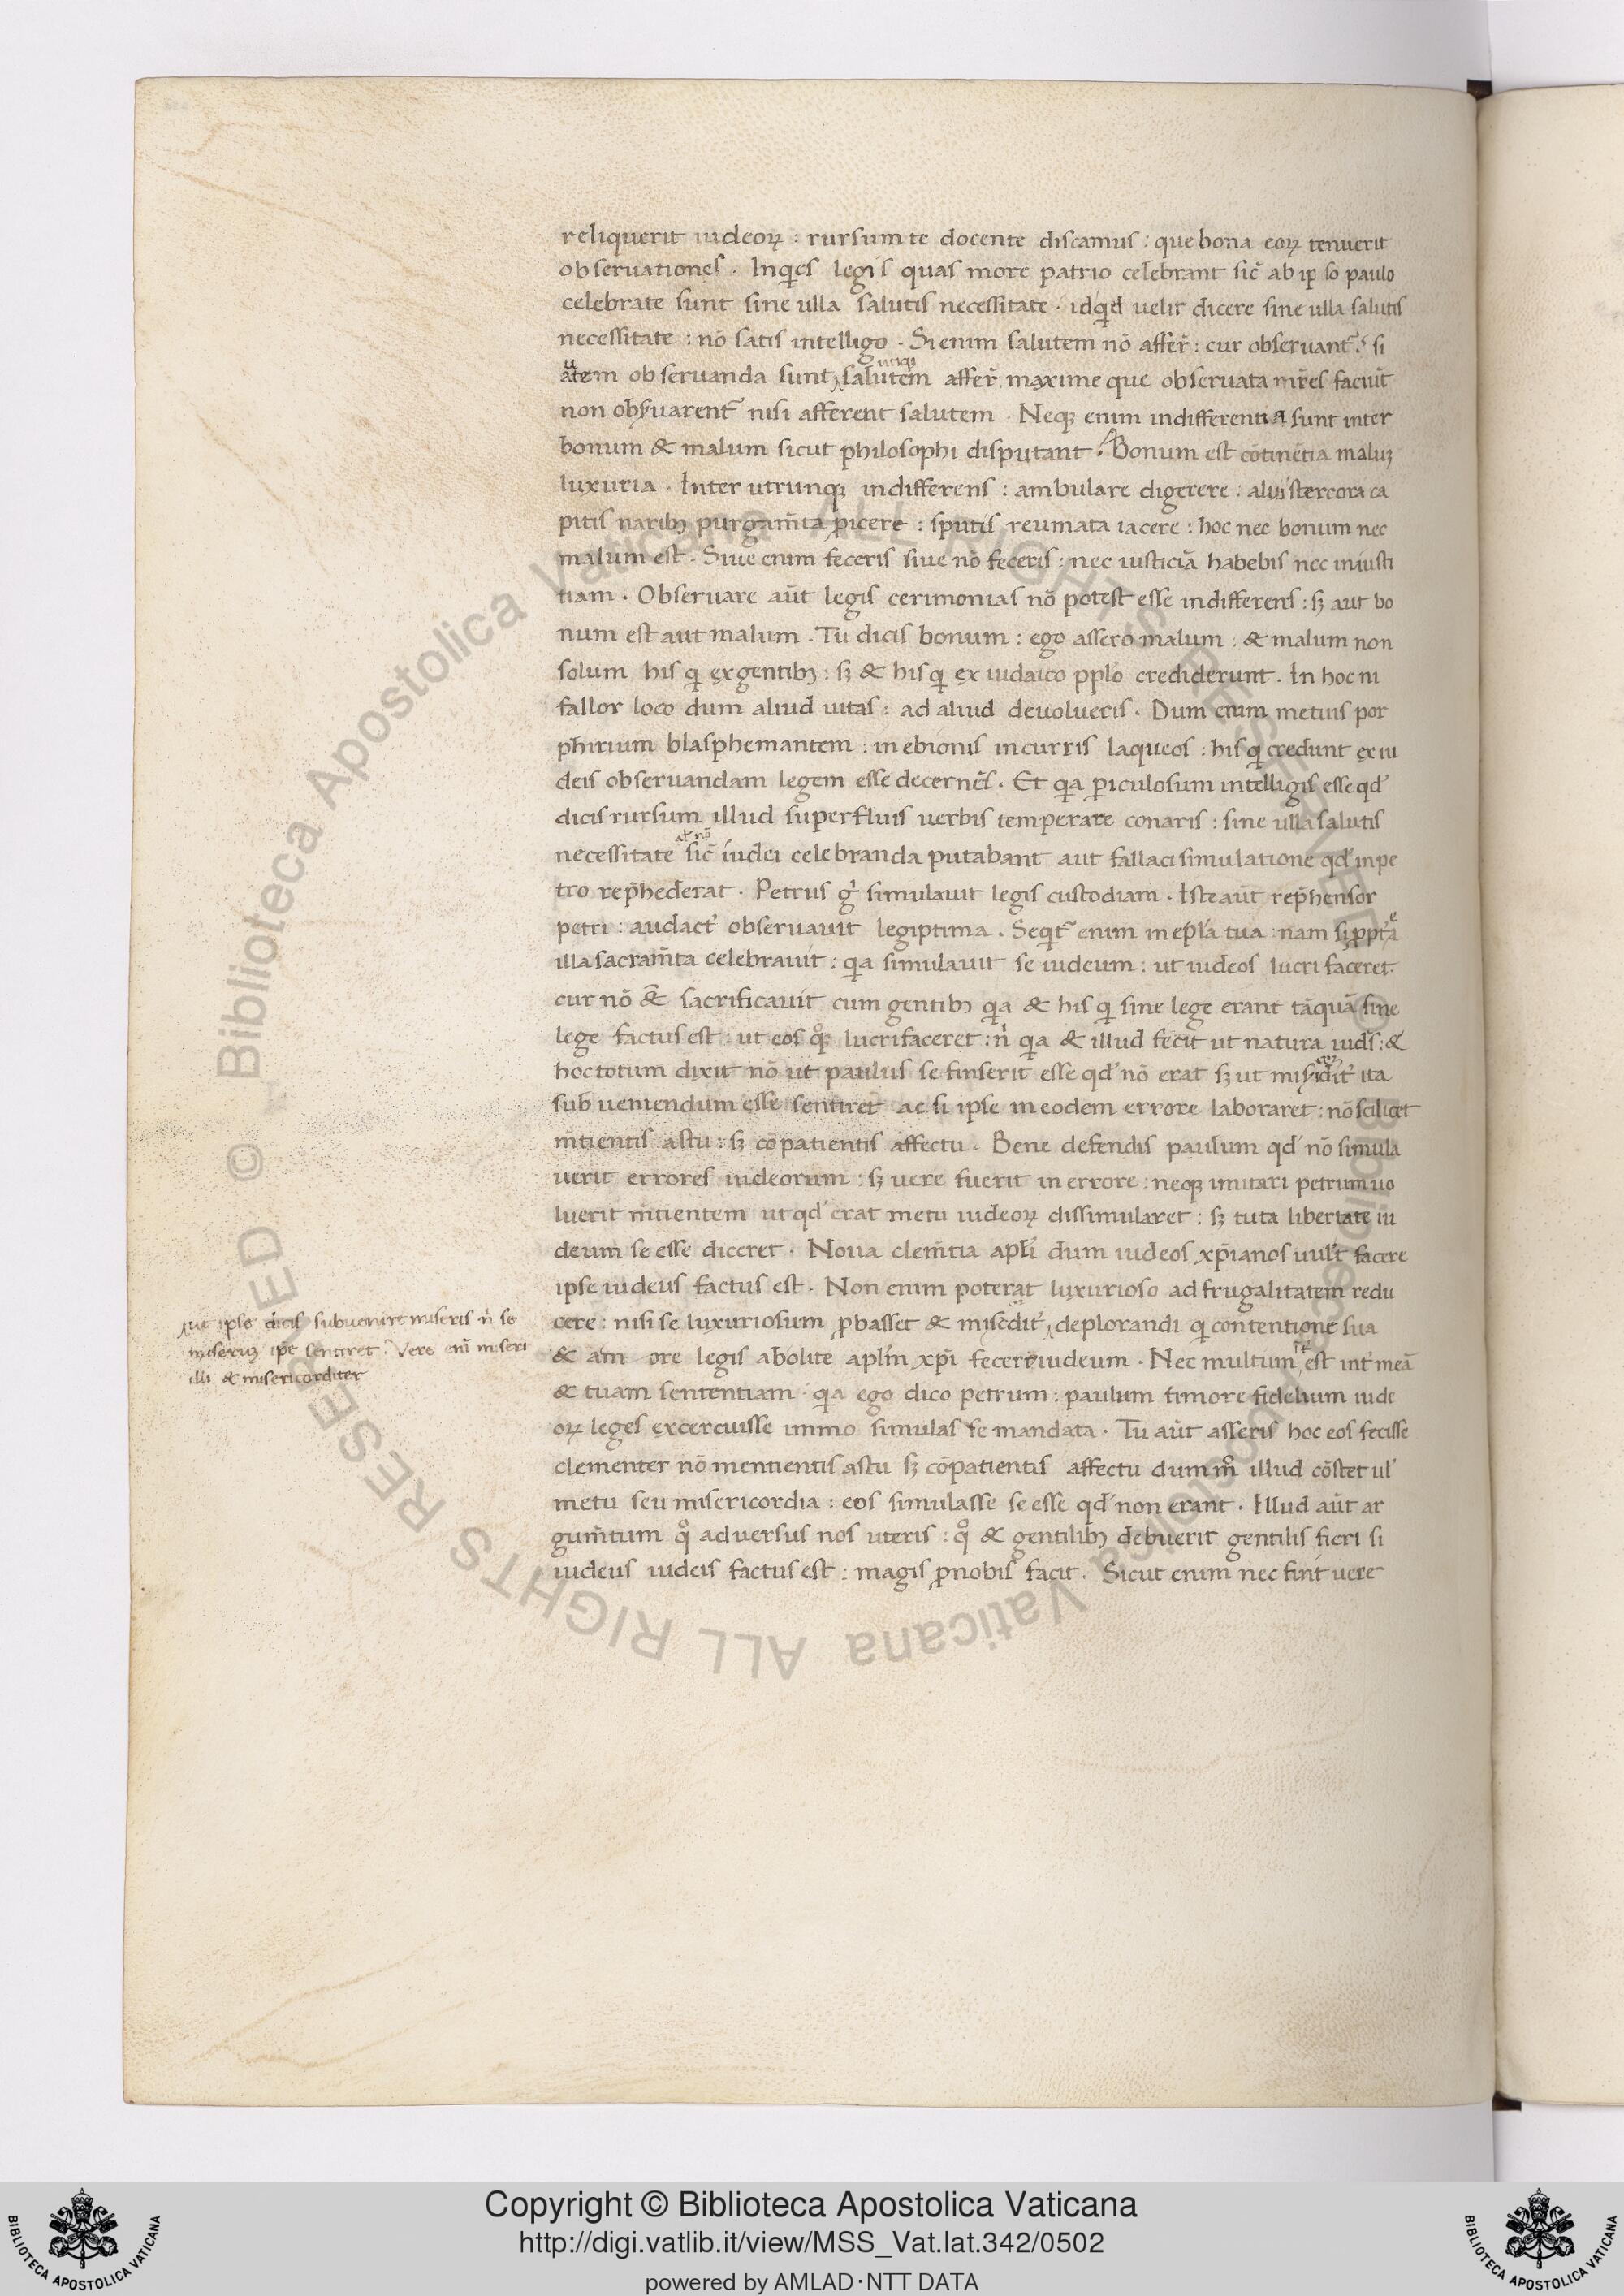 reliquerit iudeoꝝ : rursum te docente discamus : que bona eoꝝ tenuerit
observationes . Inqͥes legis quas more patrio celebrant sic̄ ab ip so paulo
celebrate sunt sine ulla salutis necessitate . id qͥd uelit dicere sine ulla salutis
necessitate : nō satis intelligo . Si enim salutem nō affer̄ : cur observant̄ ? si
utiqꝫ
autem observanda sunt, salutem affer̄ maxime que observata mr̄es faciūt
non obẜuarent̄ nisi afferent salutem . Neqꝫ enim indifferentia sunt inter
bonum & malum sicut philosophi disputant . Bonum est cōtinētia maluꝫ
luxuria . Inter utrunqꝫ indifferens : ambulare digerere : alui stercora ca
pitis naribꝫ purgam̄ta ꝓicere : sputis reumata iacere : hoc nec bonum nec
malum est . Siue enim feceris siue nō feceris : nec iusticiā habebis nec iniusti
tiam . Obseruare aūt legis cerimonias nō potest esse indifferens : sꝫ aut bo
num est aut malum . Tu dicis bonum : ego assero malum : & malum non
solum his qͥ ex gentibꝫ : sꝫ & his qͥ ex iudaico pplo crediderunt . In hoc ni
fallor loco dum aliud uitas : ad aliud deuolueris . Dum enim metuis por
phirium blasphemantem : in ebionis incurris laqueos : his qͥ credunt ex iu
deis observandam legem esse decernēs . Et qͥa ꝑiculosum intelligis esse qd̛
dicis rursum illud superfluis uerbis temperare conaris : sine ulla salutis
at nō
necessitate sic̄ iudei celebranda putabant aut fallaci simulatione qd̛ in pe
tro rep̄hēderat . Petrus gͥ simulauit legis custodiam . Iste aūt rep̄hensor
petri : audact̛ observauit legiptima . Seqͥt̄ enim in ep̄la tua : nam si ꝓpt̛ea
illa sacram̄ta celebrauit : qͥa simulauit se iudeum : ut iudeos lucri faceret .
cur nō &̄ sacrificauit cum gentibꝫ qͥa & his qͥ sine lege erant tāquā sine
lege factus est : ut eos qͦꝫ lucrifaceret : nͥ qͥa & illud fecit ut natura iuds̄ : &
hoc totum dixit nō ut paulus se finserit esse qd̛ nō erat sꝫ ut mis̛icordit̛ ita
subueniendum esse sentiret ac si ipse in eodem errore laboraret : nō scilicet
m̄tientis astu : sꝫ cōpatientis affectu . Bene defendis paulum qd̛ nō simula
uerit errores iudeorum : sꝫ uere fuerit in errore : neqꝫ imitari petrum uo
luerit m̄tientem ut qd̛ erat metu iudeoꝝ dissimularet : sꝫ tuta libertate iu
deum se esse diceret . Noua clem̄tia apl̄i dum iudeos xp̄ianos uult facere
ipse iudeus factus est . Non enim poterat luxurioso ad frugalitatem redu
cere : nisi se luxuriosum ꝓbasset & mis̛edit̛, deplorandi qͥ contentione sua
& am ore legis abolite apl̄m xp̄i fecere iudeum . Nec multum it̛ est int̛ meā
& tuam sententiam . qͥa ego dico petrum : paulum timore fidelium iude
oꝝ leges excercuisse immo simulas se mandata . Tu aūt asseris hoc eos fecisse
clementer nō mentientis astu sꝫ cōpatientis affectu dum mͦ illud cōstet ul̛
metu seu misericordia : eos simulasse se esse qd̛ non erant . Illud aūt ar
gum̄tum qͦ adversus nos uteris : qͦ & gentilibꝫ debuerit gentilis fieri si
iudeus iudeis factus est : magis ꝓ nobis facit . Sicut enim nec fuit uere
ut ipse dicis subuenire miseris nͥ se
miseruꝫ ipe sentiret . Vere enī miseri
illi & misericorditer
© Biblioteca Apostolica Vaticana ALL RIGHTS RESERVED © Biblioteca Apostolica Vaticana ALL RIGHTS RESERVED
Copyright © Biblioteca Apostolica Vaticana
http://digi.vatlib.it/view/MSS_Vat.lat.342/0502
powered by AMLAD·NTT DATA
BIBLIOTECA APOSTOLICA VATICANA
BIBLIOTECA APOSTOLICA VATICANA